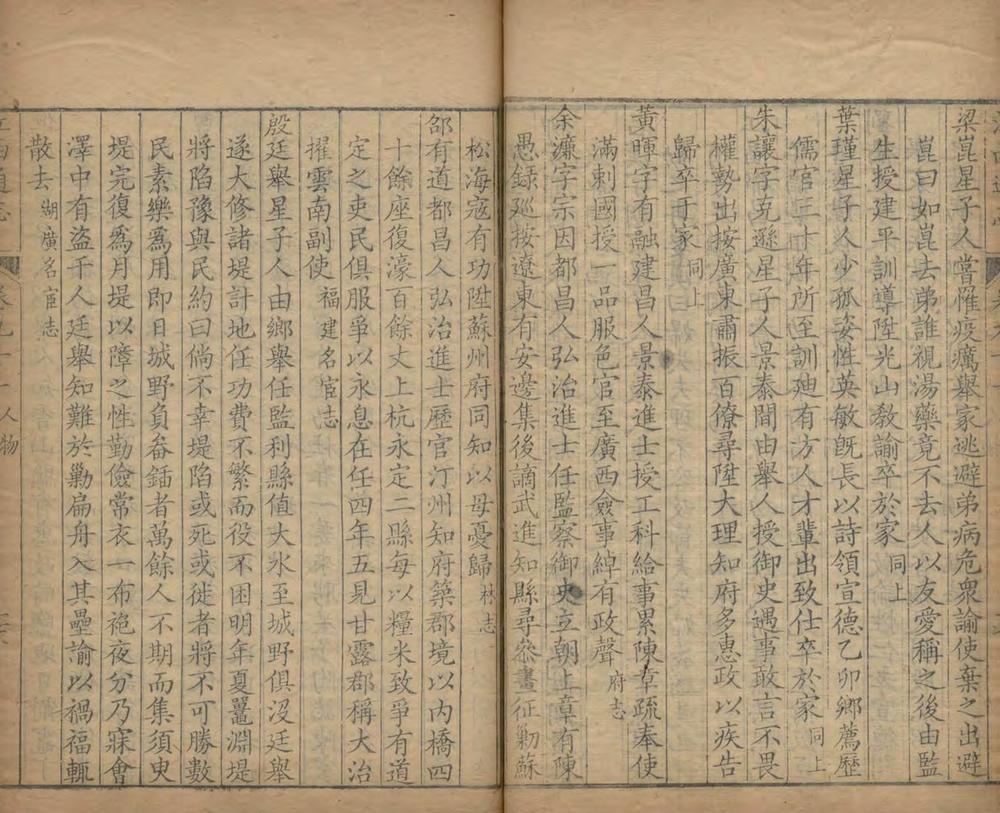 梁崑星子人嘗罹疫癘舉家逃避弟病危衆諭使棄之出避
崑曰如崑去弟誰視湯藥竟不去人以友愛稱之後由監
生授建平訓導陞光山敎諭卒於家同上
葉瑾星子人少孤姿性英敏旣長以詩領宣德乙卯鄉薦歷
儒官三十年所至訓廸有方人才輩出致仕卒於家同上
朱讓字克遜星子人景泰間由舉人授御史遇事敢言不畏
權勢出按廣東肅振百僚尋陞大理知府多惠政以疾告
歸卒于家同上
黃暉字有融建昌人景泰進士授工科給事累陳章疏奉使
滿剌國授一品服色官至廣西僉事綽有政聲府志
余濂字宗因都昌人弘治進士任監察御史立朝上章有陳
愚錄廵按遼東有安邊集後謫武進知縣尋叅畫征勦蘇
松海寇有功陞蘇州府同知以母憂歸林志
邵有道都昌人弘治進士歷官汀州知府築郡境以內橋四
十餘座復濠百餘丈上杭永定二縣每以糧米致爭有道
定之吏民俱服爭以永息在任四年五見甘露郡稱大治
擢雲南副使福建名宦志
殷廷舉星子人由鄉舉任監利縣值大水至城野俱沒廷舉
遂大修諸堤計地任功費不繁而役不困明年夏鼉淵堤
將陷豫與民約曰倘不幸堤陷或死或徙者將不可勝數
民素樂爲用卽日城野負畚鍤者萬餘人不期而集須臾
堤完復爲月堤以障之性勤儉常衣一布袍夜分乃寐會
澤中有盜千人廷舉知難於勦扁舟入其壘諭以禍福輒
散去湖廣名宦志
人物